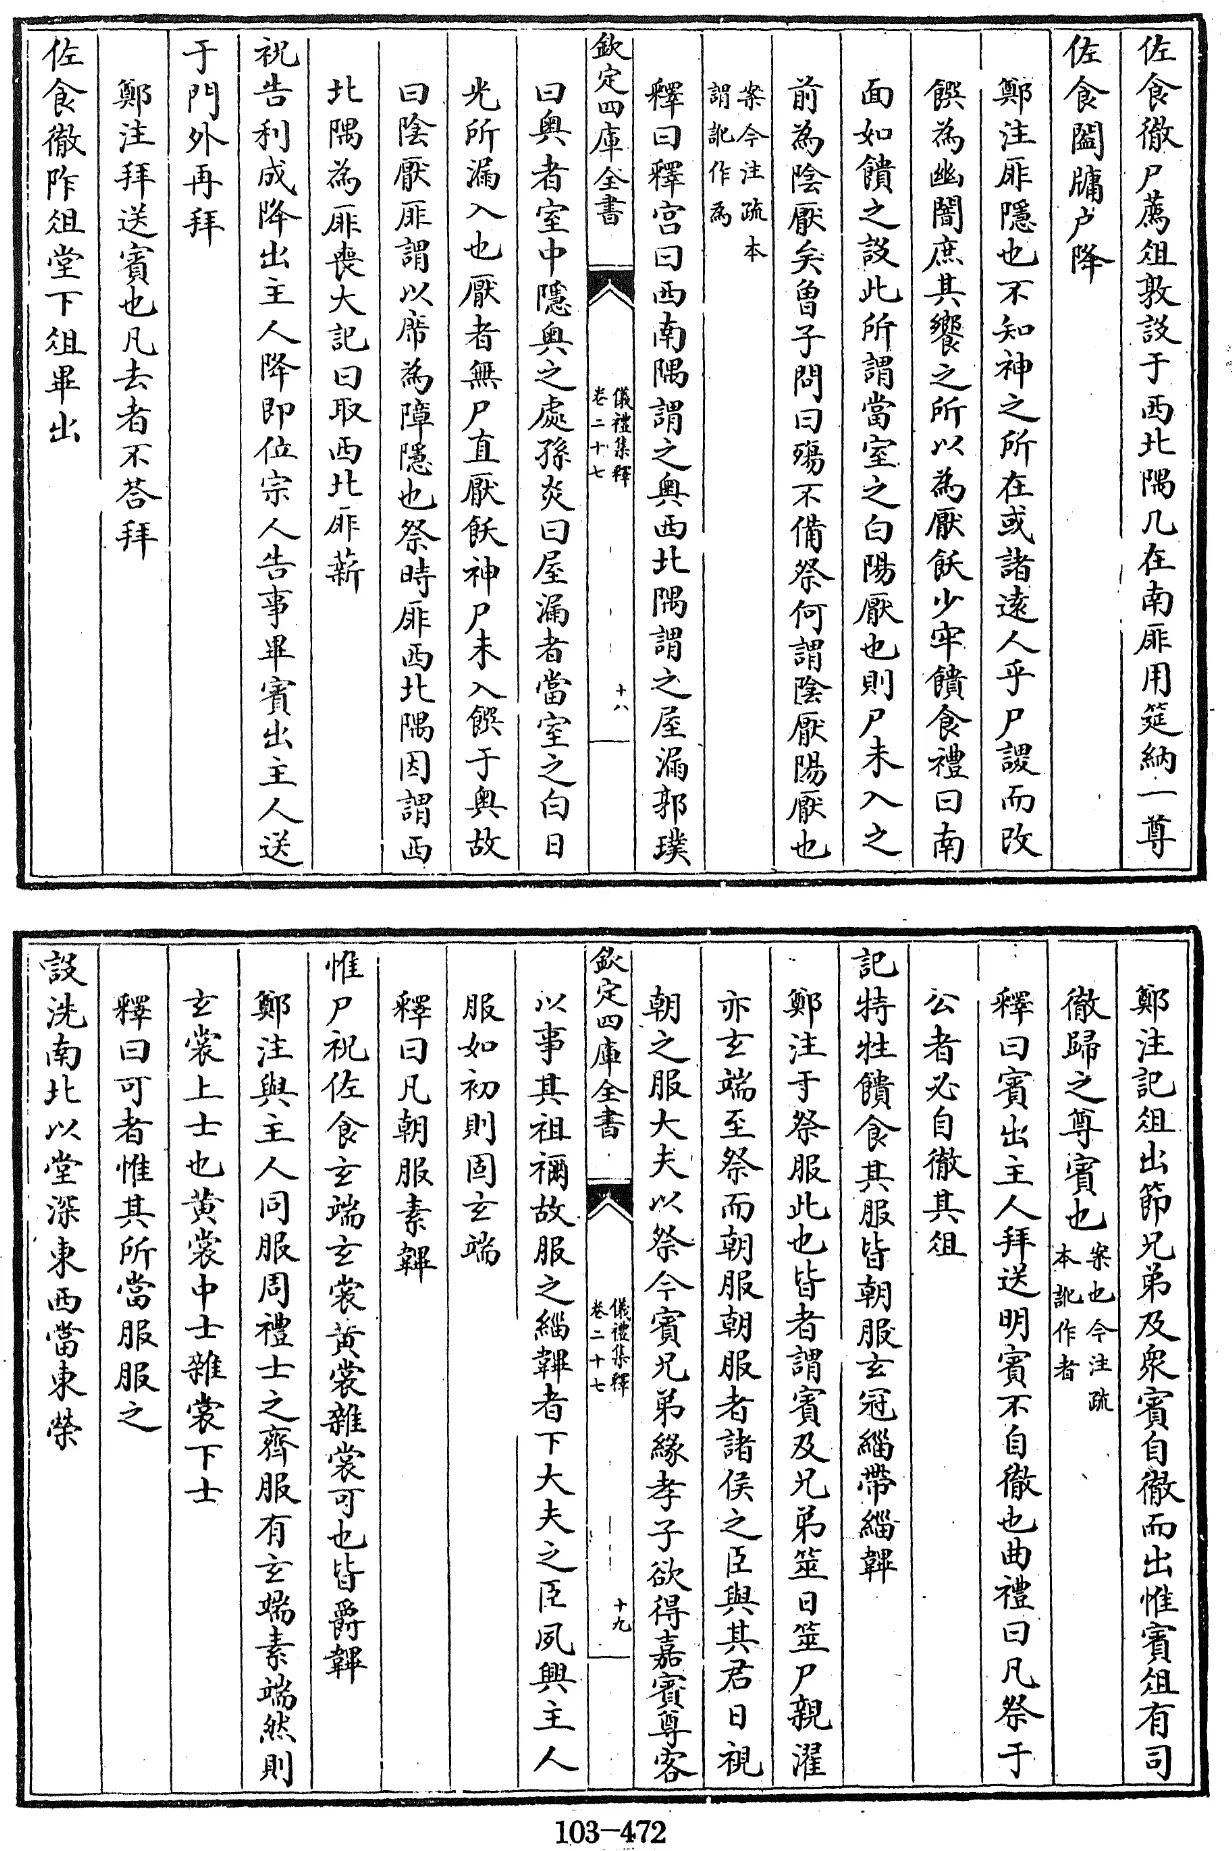 佐食徹尸薦俎敦設于西北隅几在南厞用筵納一尊
佐食闔牖户降
鄭注厞隱也不知神之所在或諸逺人乎尸謖而改
饌為幽闇庶其饗之所以為厭飫少牢饋食禮曰南
面如饋之設此所謂當室之白陽厭也則尸未入之
前為陰厭矣曾子問曰殤不備祭何謂陰厭陽厭也
案今注疏本
謂訛作為
釋曰釋宫曰西南隅謂之奥西北隅謂之屋漏郭璞
欽定四庫全書
儀禮集釋
卷二十七
十八
曰奥者室中隱奥之處孫炎曰屋漏者當室之白日
光所漏入也厭者無尸直厭飫神尸未入饌于奥故
曰陰厭厞謂以席為障隱也祭時厞西北隅因謂西
北隅為厞喪大記曰取西北厞薪
祝告利成降出主人降即位宗人告事畢賓出主人送
于門外再拜
鄭注拜送賓也凡去者不荅拜
佐食徹阼俎堂下俎畢出
鄭注記俎出節兄弟及衆賓自徹而出惟賓俎有司
徹歸之尊賓也
案也今注疏
本訛作者
釋曰賓出主人拜送明賓不自徹也曲禮曰凡祭于
公者必自徹其俎
記特牲饋食其服皆朝服玄冠緇帶緇韠
鄭注于祭服此也皆者謂賓及兄弟筮日筮尸視濯
亦玄端至祭而朝服朝服者諸侯之臣與其君日視
朝之服大夫以祭今賓兄弟緣孝子欲得嘉賓尊客
欽定四庫全書
儀禮集釋
卷二十七
十九
以事其祖禰故服之緇韠者下大夫之臣夙興主人
服如初則固玄端
釋曰凡朝服素韠
惟尸祝佐食玄端玄裳黄裳雜裳可也皆爵韠
鄭注與主人同服周禮士之齊服有玄端素端然則
玄裳上士也黄裳中士雜裳下士
釋曰可者惟其所當服服之
設洗南北以堂深東西當東榮
103-472